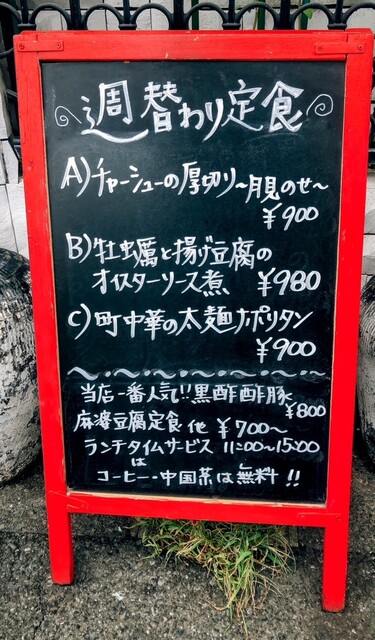 週替わり定食
A)チャーシューの厚切り〜月見のせ〜
¥900
B)牡蠣と揚げ豆腐の
オイスターソース煮 ¥980
C)町中華の太麺ナポリタン
¥900
当店一番人気!!黒酢酢豚
¥800
麻婆豆腐定食 他 ¥700〜
ランチタイムサービス 11:00〜15:00
は
コーヒー・中国茶は無料!!